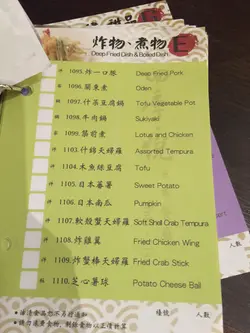 炸物、煮物 E
Deep Fried Dish & Boiled Dish
1095. 炸一口豚 Deep Fried Pork
1096. 關東煮 Oden
1097. 什菜豆腐鍋 Tofu Vegetable Pot
1098. 牛肉鍋 Sukiyaki
1099. 築前煮 Lotus and Chicken
1103. 什錦天婦羅 Assorted Tempura
1104. 木魚絲豆腐 Tofu
1105. 日本蕃薯 Sweet Potato
1106. 日本南瓜 Pumpkin
1107. 軟殼蟹天婦羅 Soft Shell Crab Tempura
1108. 炸雞翼 Fried Chicken Wing
1109. 炸蟹棒天婦羅 Fried Crab Stick
1110. 芝心薯球 Potato Cheese Ball
人數